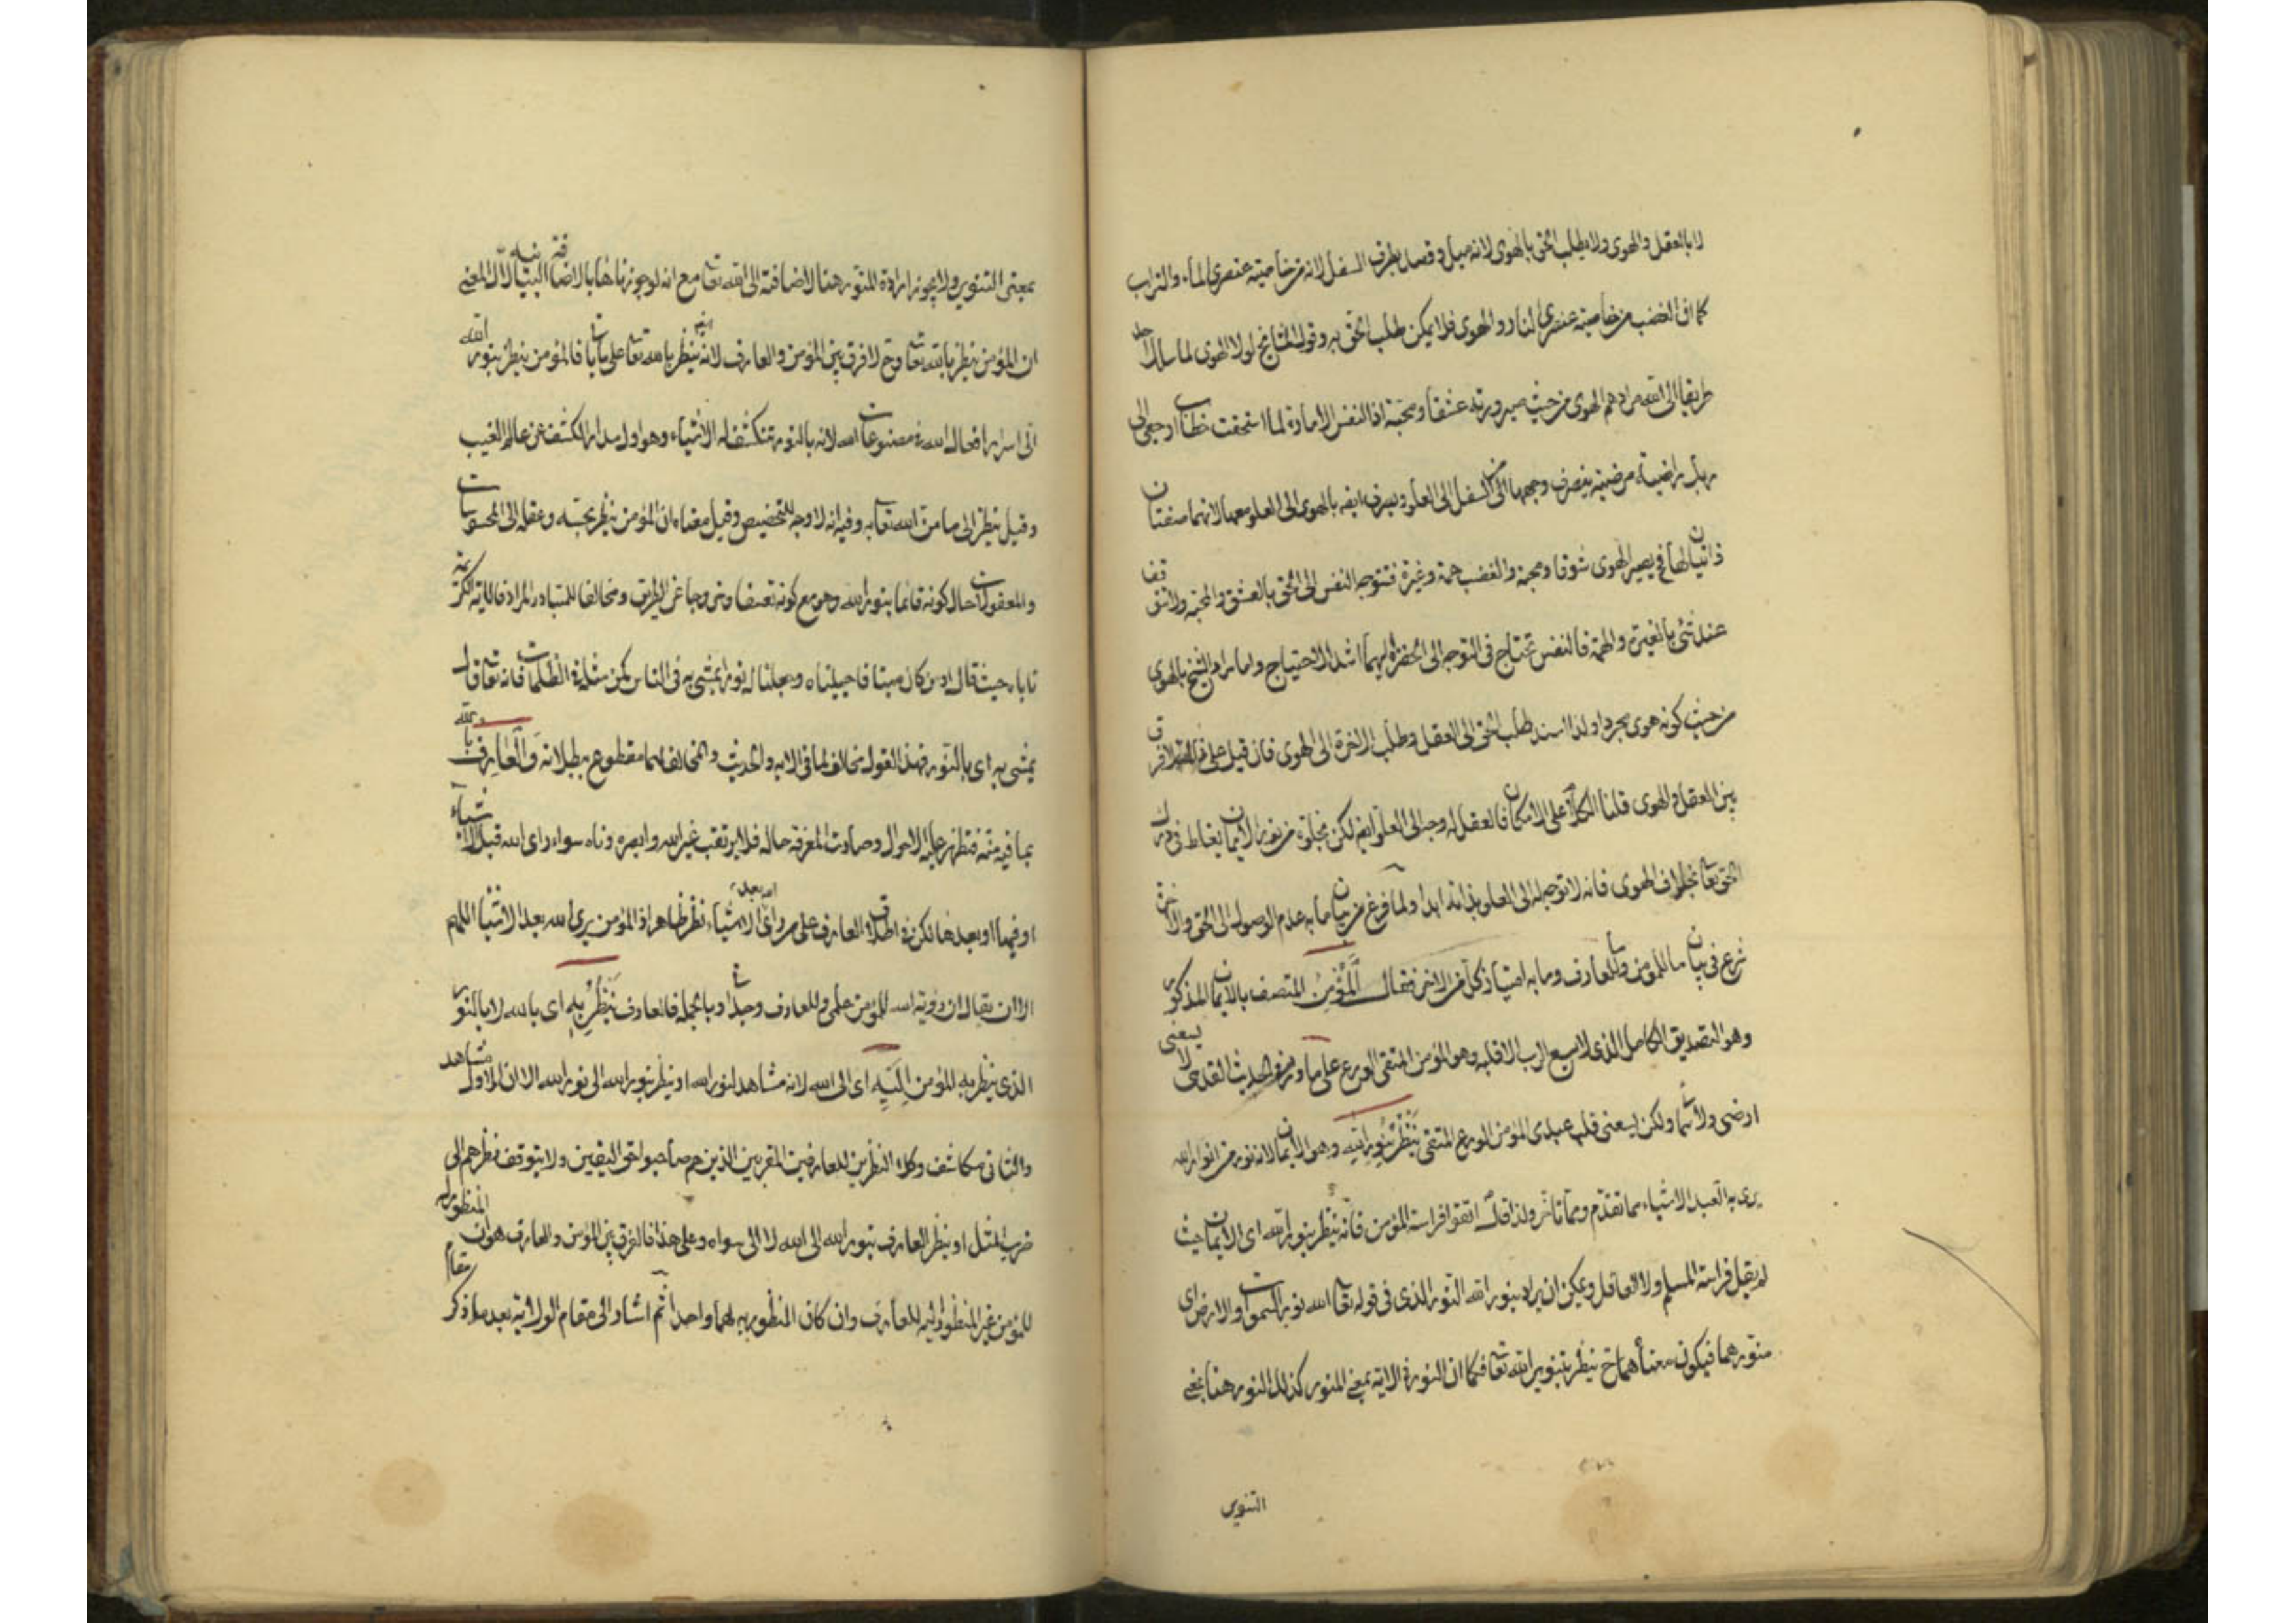 لا بالعقل والهوى ولا يطلب الحق بالهوى لانه ميل وقصد بطرف السفل لانه من خاصية عنصرى الماء والتراب
كما ان الغضب من خاصية عنصرى النار والهوى فلا يمكن طلب الحق به وقول المشايخ لولا الهوى لما سلك احد
طريقا الى الله مرادهم الهوى من حيث صيرورته عشقا ومحبة اذ النفس الامارة لما استحقت خطاب ارجعى الى
ربك راضية مرضية ينصرف وجهها من السفل الى العلو ويصرف ايضا بالهوى الى العلو معها لانهما صفتان
ذاتيان لها فيصير الهوى شوقا ومحبة والغضب همة وغيرة فتتوجه النفس الى الحق بالعشق والمحبة ولا تقف
عند شئ بالغيرة والهمة فالنفس تحتاج فى التوجه الى الحضرة اليهما اشد الاحتياج واما مراد الشيخ بالهوى
من حيث كونه هوى مجردا ولذا اسند طلب الحق الى العقل وطلب الاخرة الى الهوى فان قيل على هذا لا فرق
بين العقل والهوى قلنا الكلام على الامكان فالعقل له وجه الى العلو ايضا لكن بخلوه من نور الايمان يغلط فى درك
الحق تعا بخلاف الهوى فانه لا توجه له الى العلو بذاته ابدا ولما فرغ من بيان ما به عدم الوصول الى الحق والاخرة
شرع فى بيان ما للمؤمن وما للعارف وما به امتياز كل من الاخر فقال المؤمن المتصف بالايمان المذكور
وهو التصديق الكامل الذى لا يسع الرب الا قلبه وهو المؤمن المتقى الورع على ما ورد فى الحديث القدسى لا يسعنى
ارضى ولا سمائى ولكن يسعنى قلب عبدى المؤمن الورع المتقى ينظر بنور الله وهو الايمان لانه نور من انوار الله
يرى به العبد الاشياء مما تقدم ومما تأخر ولذا قال اتقوا فراسة المؤمن فانه ينظر بنور الله اى الايمان حيث
لم يقل فراسة المسلم ولا العاقل ويمكن ان يراد بنور الله النور الذى فى قوله تعا الله نور السموات والارض اى
منورهما فيكون معناه ح ينظر بتنوير الله تعا فكما ان النور فى الاية بمعنى المنور كذلك النور هنا بمعنى
التنوير
بمعنى التنوير ولا يجوز ارادة المنور هنا لاضافته الى الله تعا مع انه لو جوزناها بالاضافة البيانية لآل المعنى
ان المؤمن ينظر بالله تعا وح لا فرق بين المؤمن والعارف لانه ايضا ينظر بالله تعا على ما يأتى فالمؤمن ينظر بنور الله
الى اسرار افعال الله ومصنوعات الله لانه بالنور تنكشف له الاشياء وهو اول مدار الكشف عن عالم الغيب
وقيل ينظر الى ما من الله تعا به وفيه انه لا وجه للتخصيص وقيل معناه ان المؤمن ينظر بحسه وعقله الى المحسوسات
والمعقولات حال كونه قائما بنور الله وهو مع كونه تعسفا وخروجا عن الطريق ومخالفا للمتبادر المراد فالاية الكريمة
تاباه حيث قال او من كان ميتا فاحييناه وجعلنا له نورا يمشى به فى الناس كمن مثله فى الظلمات فانه تعا قال
يمشى به اى بالنور فهذا القول مخالف لما فى الاية والحديث والمخالف لهما مقطوع ببطلانه والعارف بالله
بما فيه منه فتظهر عليه الاحوال وصارت المعرفة حاله فلا يرتقب غير الله وابصره وناه سواء راى الله قبل الاشياء
او فيها او بعدها لكن فى اطلاق العارف على من راى الله بعد الاشياء نظر ظاهر اذ المؤمن يرى الله بعد الاشياء اللهم
الا ان يقال ان رؤية الله للمؤمن علمى وللعارف وجدانى وبالجملة فالعارف ينظر به اى بالله لا بالنور
الذى ينظر به المؤمن اليه اى الى الله لانه مشاهد لنور الله او ينظر بنور الله الى نور الله الا ان الاول مشاهد
والثانى مكاشف وكلا النظرين للعارفين المقربين الذين هم صاحبوا حق اليقين ولا يتوقف نظرهم الى
ضرب المثل او ينظر العارف بنور الله الى الله لا الى سواه وعلى هذا فالفرق بين المؤمن والعارف هو ان المنظور اليه
للمؤمن غير المنظور اليه للعارف وان كان المنظور به لهما واحدا ثم اشار الى مقام الولاية بعد ما ذكر مقام